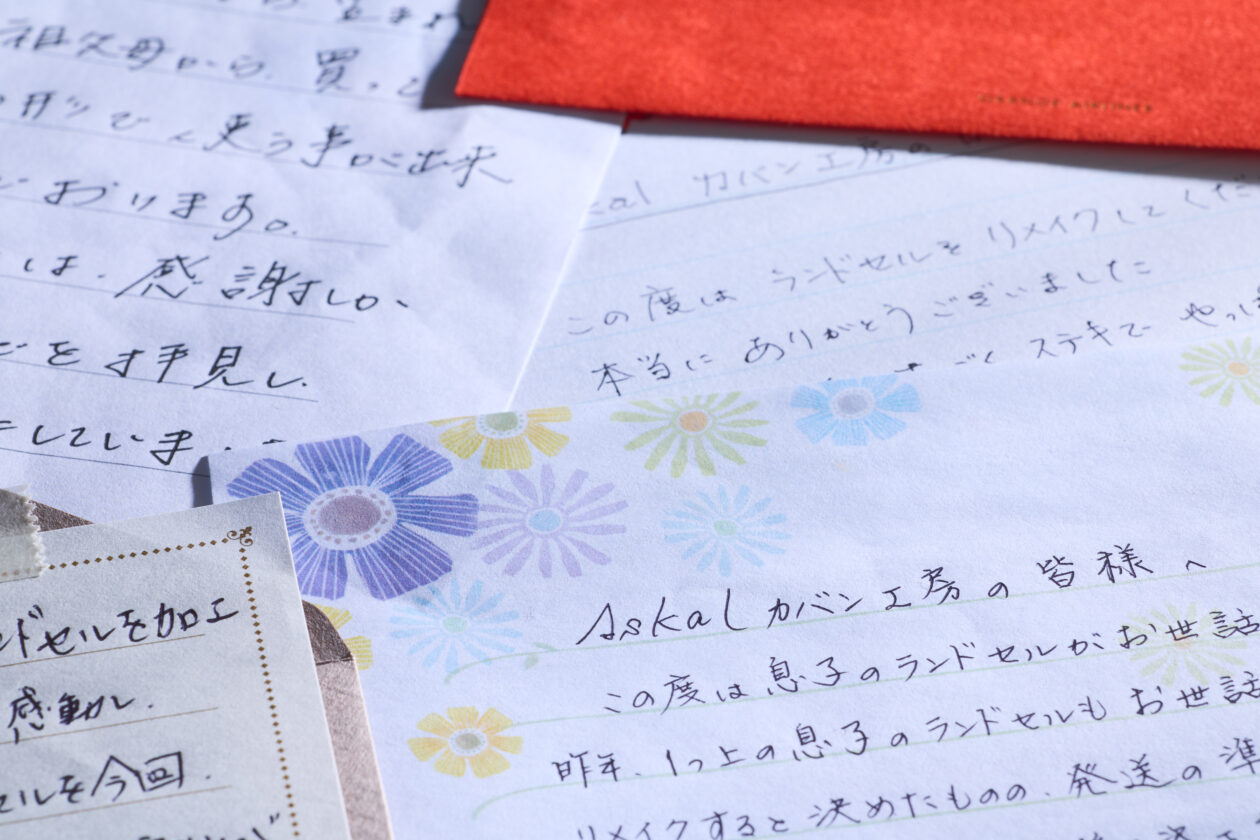 祖父母から、買って
使う事が出来
ております。
は、感謝し
を拝見し、
していま
カバン工房の
この度は ランドセルを リメイクしてくだ
本当に ありがとうございました
ステキで やっぱ
Askal カバン工房の皆様へ
この度は息子のランドセルがお世話
昨年、1つ上の息子のランドセルもお世話
リメイクすると決めたものの、発送の準
ンドセルを加工
感動し、
セルを今回、